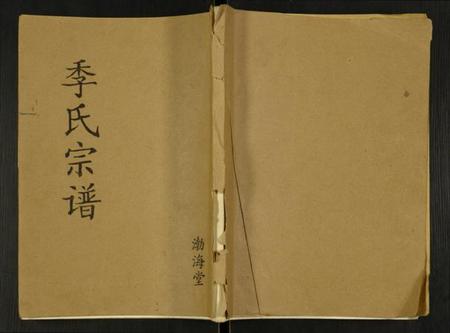 季氏宗谱
渤海堂